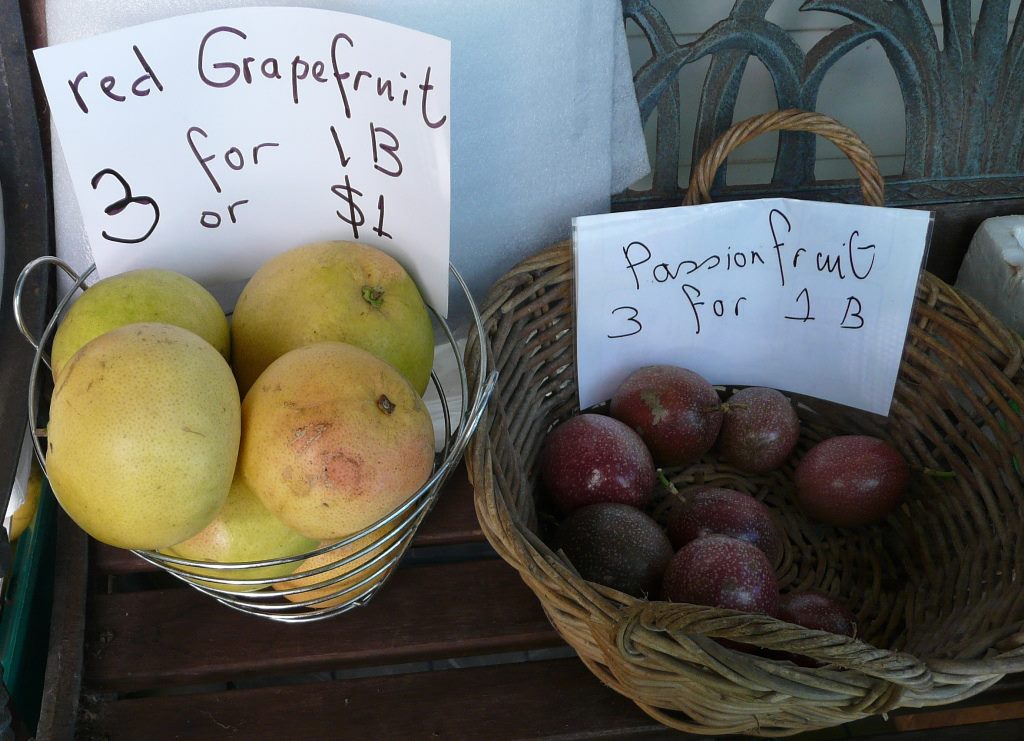 red Grapefruit
3 for 1 B
or $1
Passionfruit
3 for 1 B